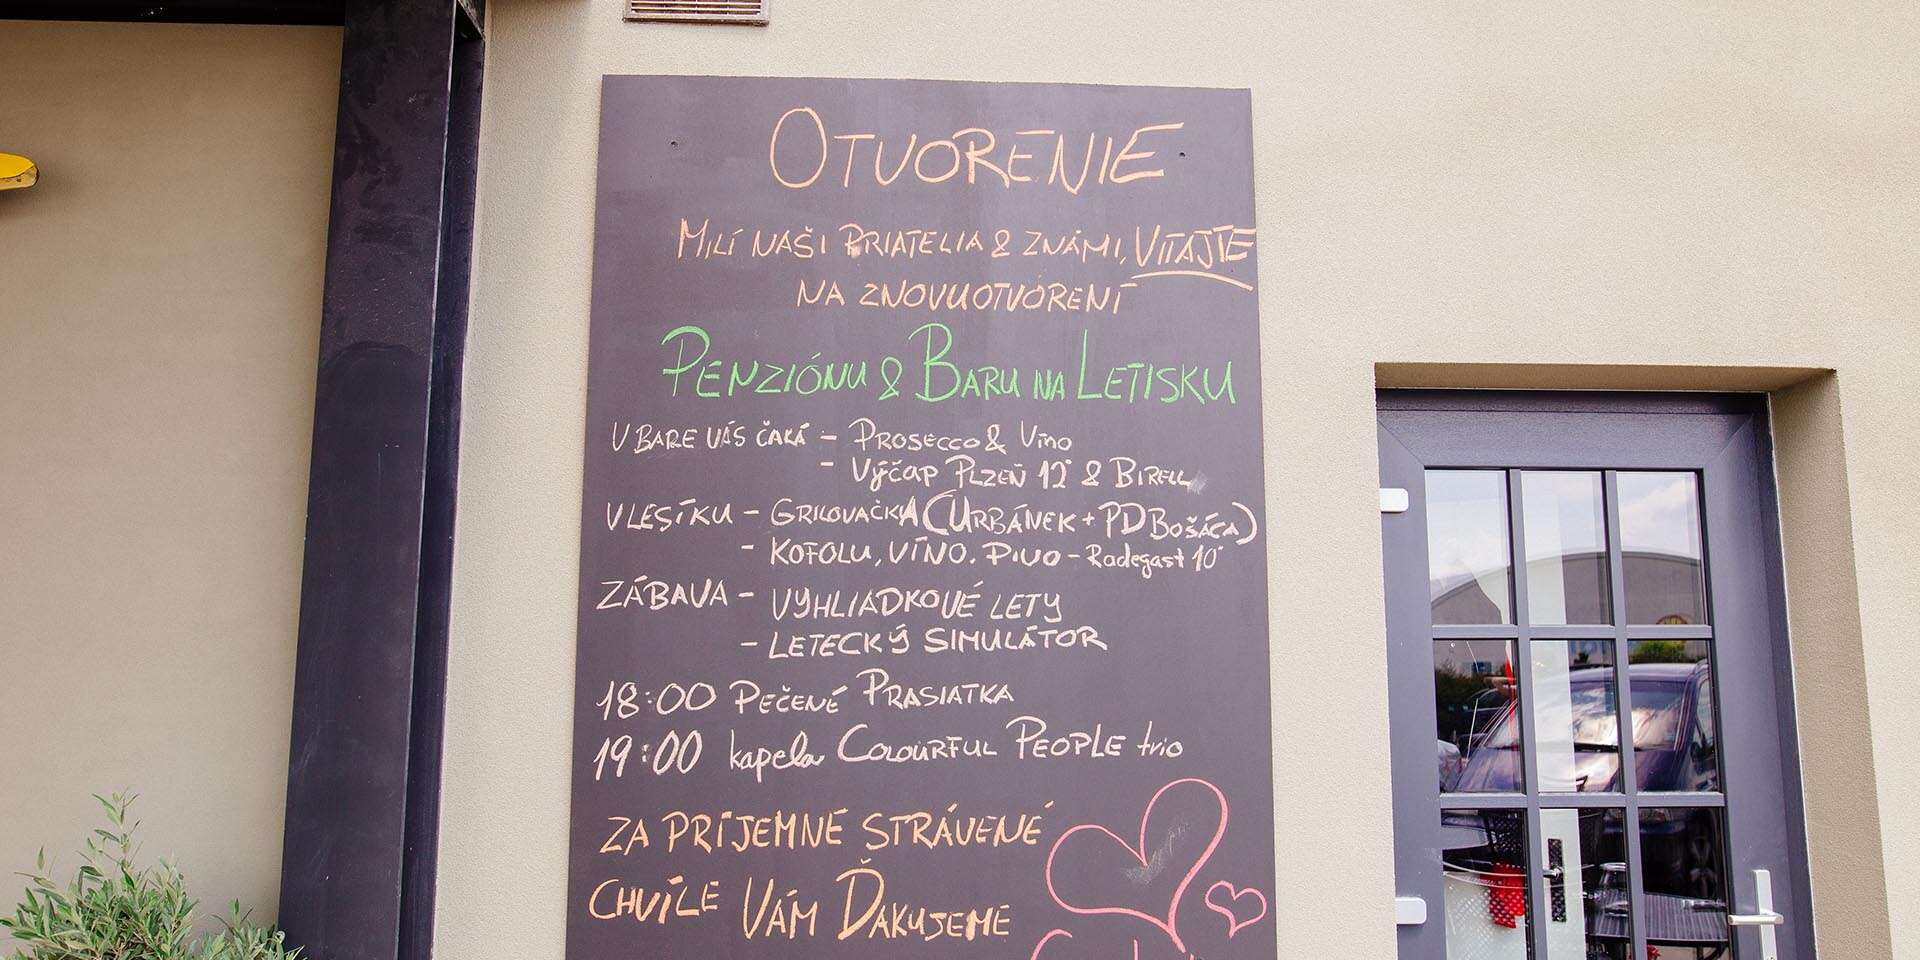 OTVORENIE
MILÍ NAŠI PRIATELIA & ZNÁMI, VITAJTE
NA ZNOVUOTVORENÍ
PENZIÓNU & BARU NA LETISKU
V BARE VÁS ČAKÁ - PROSECCO & Víno
- Výčap PLZEŇ 12° & BIRELL
V LESÍKU - GRILOVAČKA (URBÁNEK + PD BOŠÁCA)
- KOFOLU, VÍNO, PIVO - Radegast 10°
ZÁBAVA - VYHLIADKOVÉ LETY
- LETECKÝ SIMULÁTOR
18:00 PEČENÉ PRASIATKA
19:00 kapela COLOURFUL PEOPLE trio
ZA PRÍJEMNÉ STRÁVENÉ
CHVÍLE VÁM ĎAKUJEME